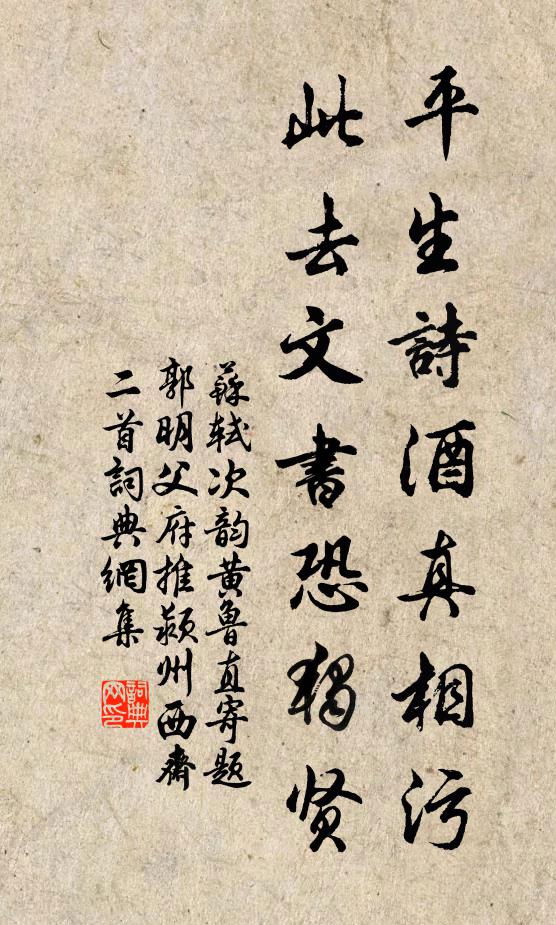 平生詩酒真相污
此去文書恐獨贤
蘇轼次韵黄魯直寄题
郭明父府推颍州西齋
二首詞典網集
詞典網印